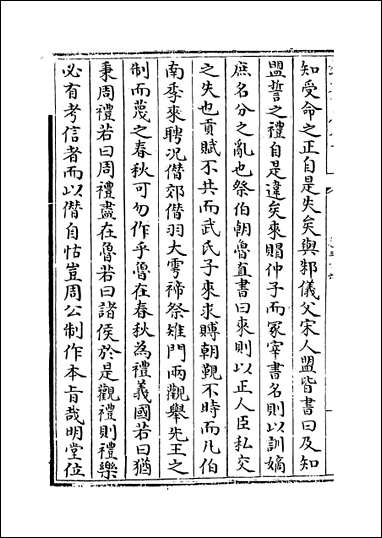 知受命之正自是失矣與邾儀父宋人盟皆書曰及知
盟誓之禮自是違矣來賵仲子而冢宰書名則以訓嫡
庶名分之亂也祭伯朝魯直書曰來則以正人臣私交
之失也貢賦不共而武氏子來求賻朝覲不時而凡伯
南季來聘况僭郊僭羽大雩禘祭雉門兩觀舉先王之
制而蔑之春秋可勿作乎魯在春秋為禮義國若曰猶
秉周禮若曰周禮盡在魯若曰諸侯於是觀禮則禮樂
必有考信者而以僭自怙豈周公制作本旨哉明堂位